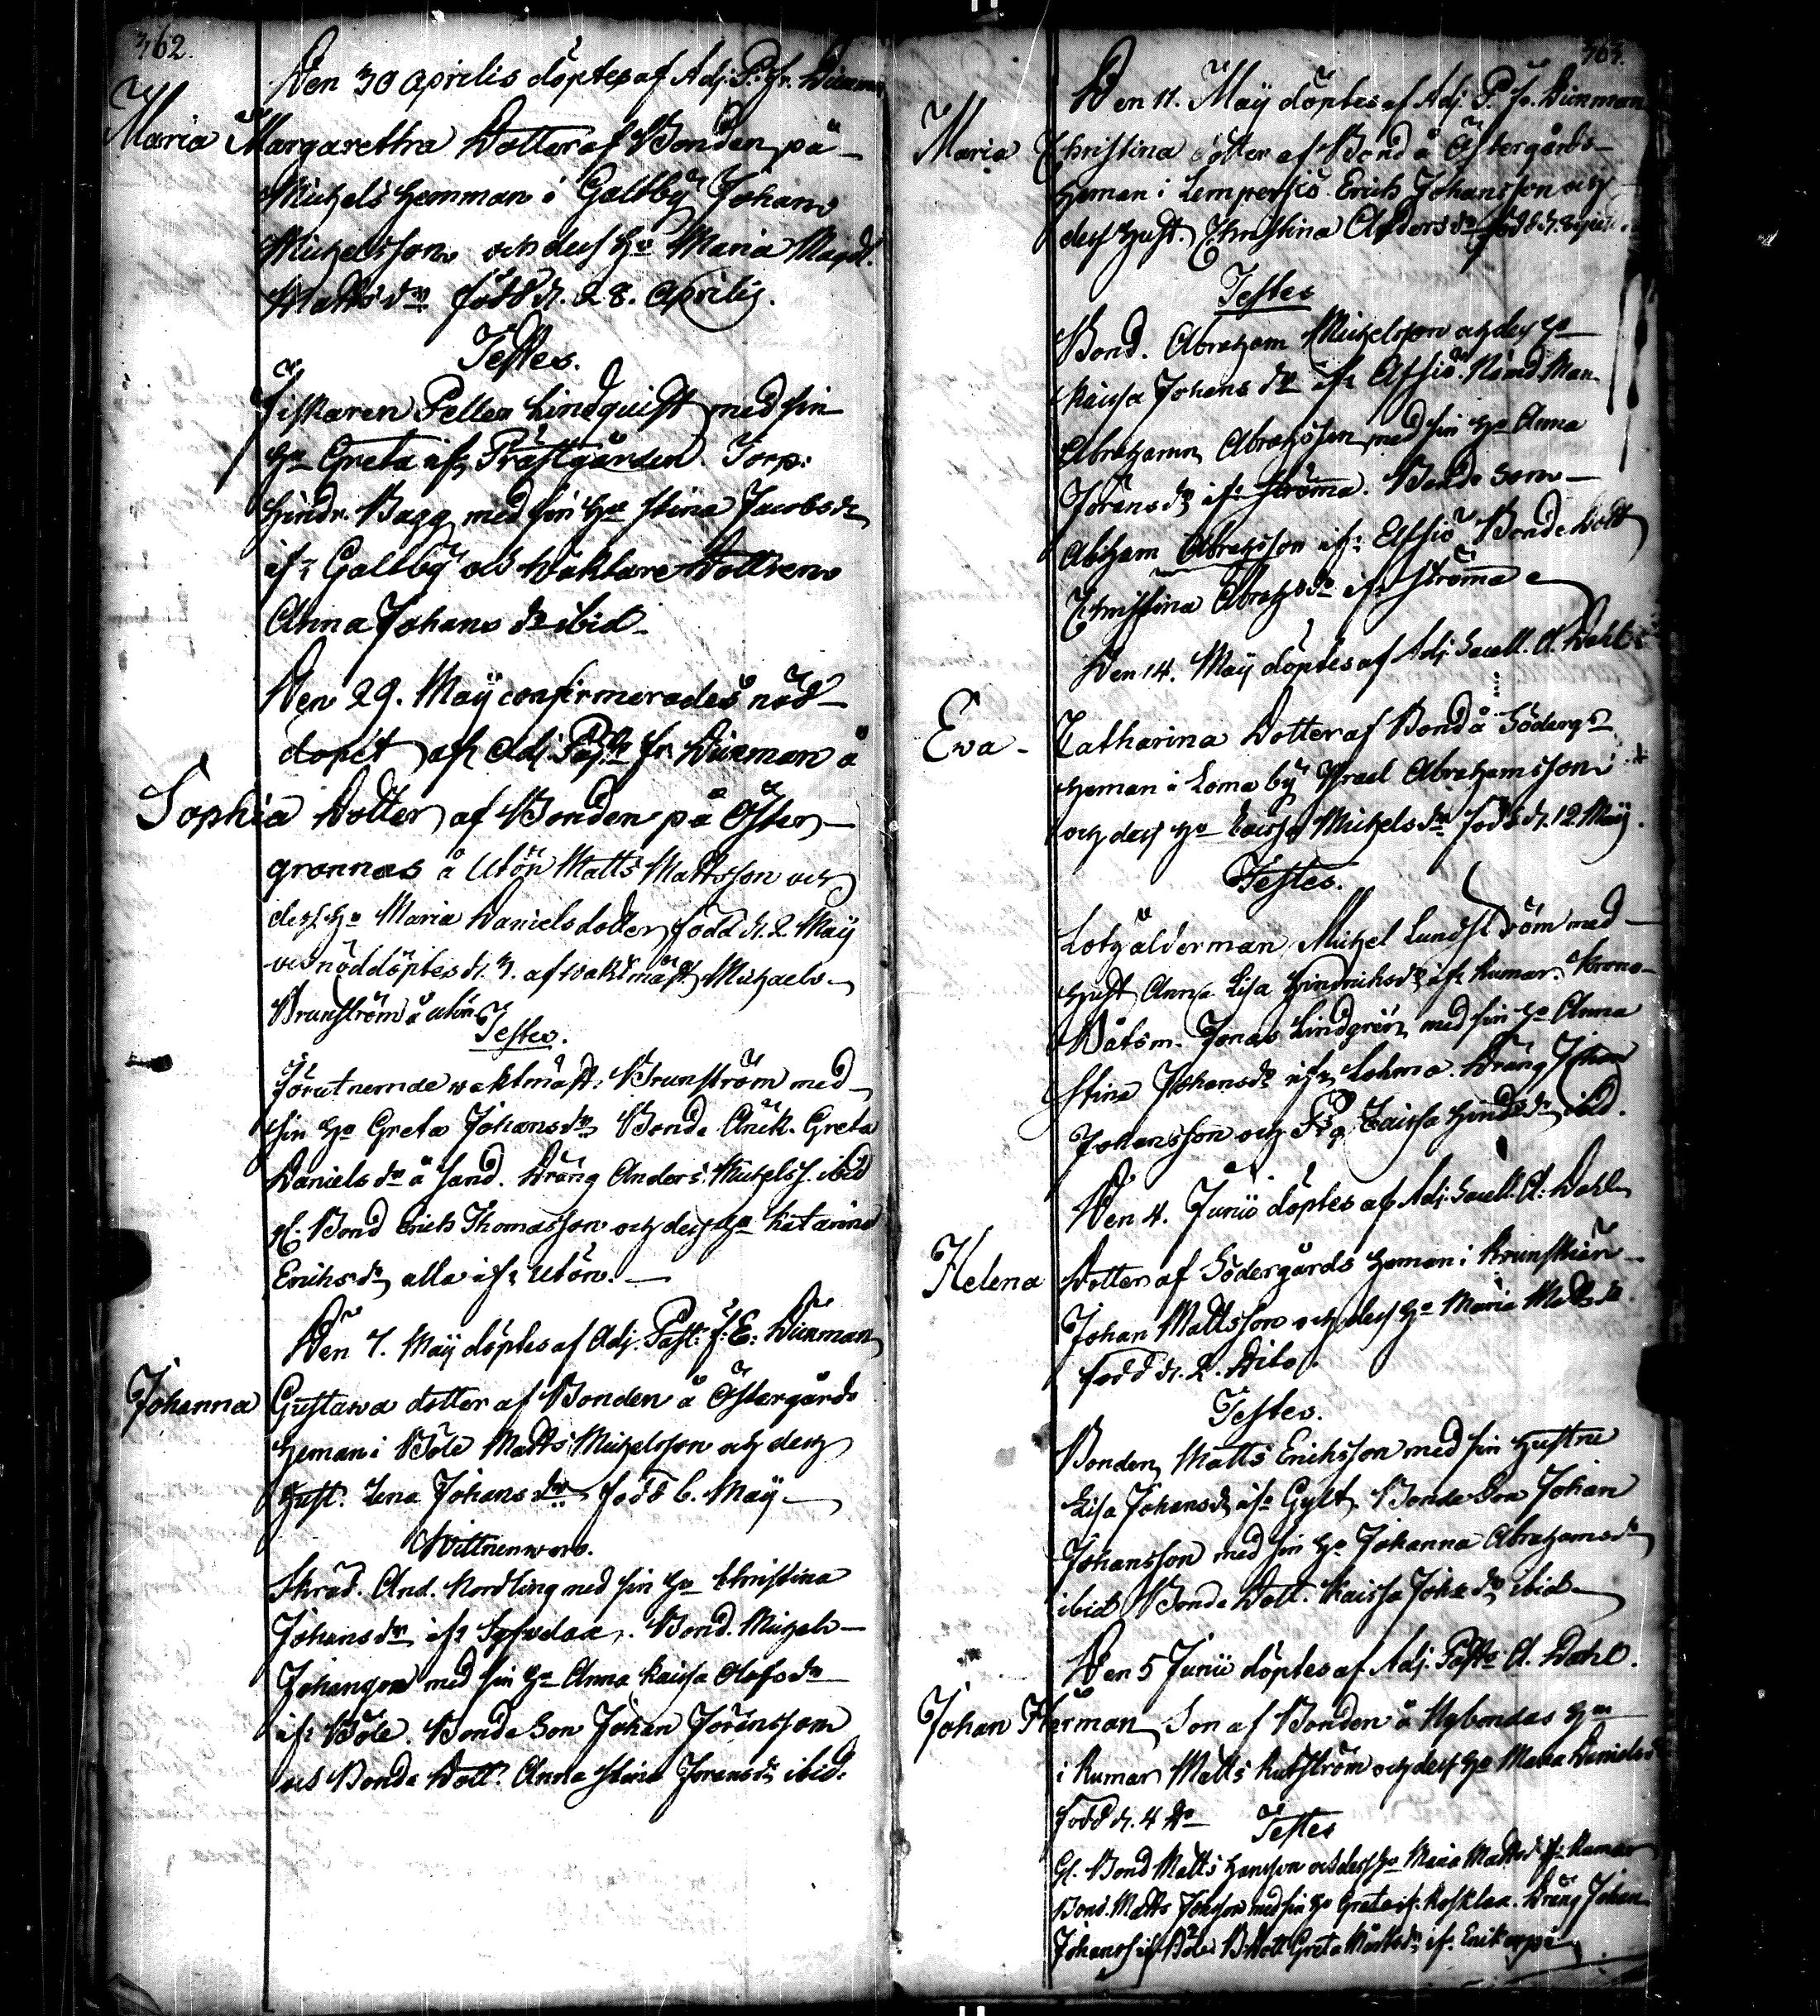 362.
Den 30 Aprilis döptes af Adj. P. Fr. Wirzman
Maria Margaretha Dotter af Bonden på
Michels Hemman i Galtby Johan
Michelsson och dess Ho Maria Magd.
Matts dr född d. 28. Aprilis.
Testes.
Fiskaren Petter Lindquist med sin
Ho Greta ifr Prästgården. Torp:
Hindr. Bagg med sin Ho Stina Jacobs dr
ifr Galtby och Wäktare Dottren
Anna Johans dr ibid
Den 29. Maij confirmerades nöd-
dopet af Adj. Past. Fr. Wirzman å
Sophia Dotter af Bonden på Öster
grannas å Utön Matts Mattsson och
dess Ho Maria Danielsdotter född d. 2 Maij
och nöddöptes d. 3. af waktmäst Michael
Brunström å Utön
Testes.
Förutnemde waktmäst. Brunström med
sin Ho Greta Johans dr Bonde Greta
Daniels dr å Sand. Dräng Anders Michelss. ibid
gl. Bond Erich Thomasson och dess Ho Katarina
Erichs dr alla ifr Utön.
Den 7. Maij döptes af Adj. Past: F: E: Wirzman
Johanna Gustawa dotter af Bonden å Östergårds
Heman i Böle Matts Michelsson och dess
Hust. Lena Johans dr född 6. Maij
Wittnen woro.
Skräd. And. Nordling med sin Ho Christina
Johans dr ifr. Bond. Michel
Johanson med sin Ho Anna Kaisa Olofs dr
ifr Böle. Bonde Son Johan Jöransson
och Bonde Dott. Anna Stina Jörans dr ibid.
363.
Den 11. Maij döptes af Adj. P. Fr. Wirzman
Maria Christina dotter af Bond å Östergårds
Heman i Lempersiö Erich Johansson och
dess Hust. Christina Anders dr född d.
Testes
Bond. Abraham Michelsson och dess Ho
Kaisa Johans dr ifr Nämd. Man
Abraham Abrahsson med sin Ho Anna
Jörans dr ifr Ströma. Bonde Son
Abraham Abrahsson ifr Bonde Dott
Christina Abrahs dr ifr Ströma
Den 14. Maij döptes af Adj. Sacell. A. Dahl
Ewa Catharina Dotter af Bond å Söderg
Heman i Loma by Israel Abrahamsson
och dess Ho Caisa Michels dr född d. 12. Maij.
Testes.
Lots ålderman Michel Lundström med
Hust Anna Lisa Hindrichs dr ifr Rumar. Krono
Båtsm. Jonas Lindgrén med sin Ho Anna
Stina Johans dr ifr Lohma. Dräng Johan
Johansson och Pig. Caisa Hindrs dr ibid.
Den 4. Junii döptes af Adj. Sacell. A. Dahl
Helena Dotter af Södergårds Heman i Brunskiär
Johan Mattsson och dess Ho Maria Matts dr
född d. 2. Dito.
Testes.
Bonden Matts Erichsson med sin Hustru
Lisa Johans dr ifr Gylt. Bonde Son Johan
Johansson med sin Ho Johanna Abrahams dr
ibid Bonde Dott. Kaisa Johs dr ibid
Den 5 Junii döptes af Adj. Past A. Dahl.
Johan Herman Son af Bonden å Nybondas Ho
i Rumar Matts Rutström och dess Ho Maria Daniels dr
född d. 4 do
Testes
Gl. Bond Matts Hansson och dess Ho Maria Matts dr ifr Rumar
Bond. Matts Johsson med sin Ho Greta ifr. Rosklax. Dräng Johan
Johanss. ifr Böle B. Dott Greta Matts dr ifr.